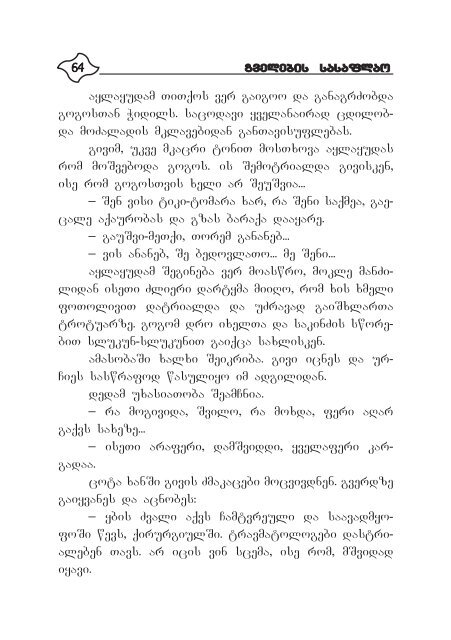 64
გველების სასაფლაო
აყლაყუდამ თითქოს ვერ გაიგოო და განაგრძობდა
გოგოსთან ჭიდილს. საცოდავი ყველანაირად ცდილობ-
და მოძალადის მკლავებიდან განთავისუფლებას.
გივიმ, უკვე მკაცრი ტონით მოსთხოვა აყლაყუდას
რომ მოშვებოდა გოგოს. ის შემოტრიალდა გივისკენ,
ისე რომ გოგოსთვის ხელი არ შეუშვია...
– შენ ვისი ტიკი-ტომარა ხარ, რა შენი საქმეა, გაე-
ცალე აქაურობას და გზას ბარაქა დააყარე.
– გაუშვი-მეთქი, თორემ განანებ...
– ვის ანანებ, შე ბედოვლათო... მე შენი...
აყლაყუდამ შეგინება ვერ მოასწრო, მოკლე მანძი-
ლიდან ისეთი ძლიერი დარტყმა მიიღო, რომ ხის ხმელი
ფოთოლივით დატრიალდა და უძრავად გაიშხლართა
ტროტუარზე. გოგომ დრო იხელთა და საკინძის სწორე-
ბით სლუკუნ-სლუკუნით გაიქცა სახლისკენ.
ამასობაში ხალხი შეიკრიბა. გივი იცნეს და ურ-
ჩიეს სასწრაფოდ წასულიყო იმ ადგილიდან.
დედამ უხასიათობა შეამჩნია.
– რა მოგივიდა, შვილო, რა მოხდა, ფერი აღარ
გაქვს სახეზე...
– ისეთი არაფერი, დამშვიდდი, ყველაფერი კარ-
გადაა.
ცოტა ხანში გივის ძმაკაცები მოცვივდნენ. გვერდზე
გაიყვანეს და აცნობეს:
– ყბის ძვალი აქვს ჩამტვრეული და საავადმყო-
ფოში წევს, ქირურგიულში. ტრავმატოლოგები დასტრი-
ალებენ თავს. არ იცის ვინ სცემა, ისე რომ, მშვიდად
იყავი.